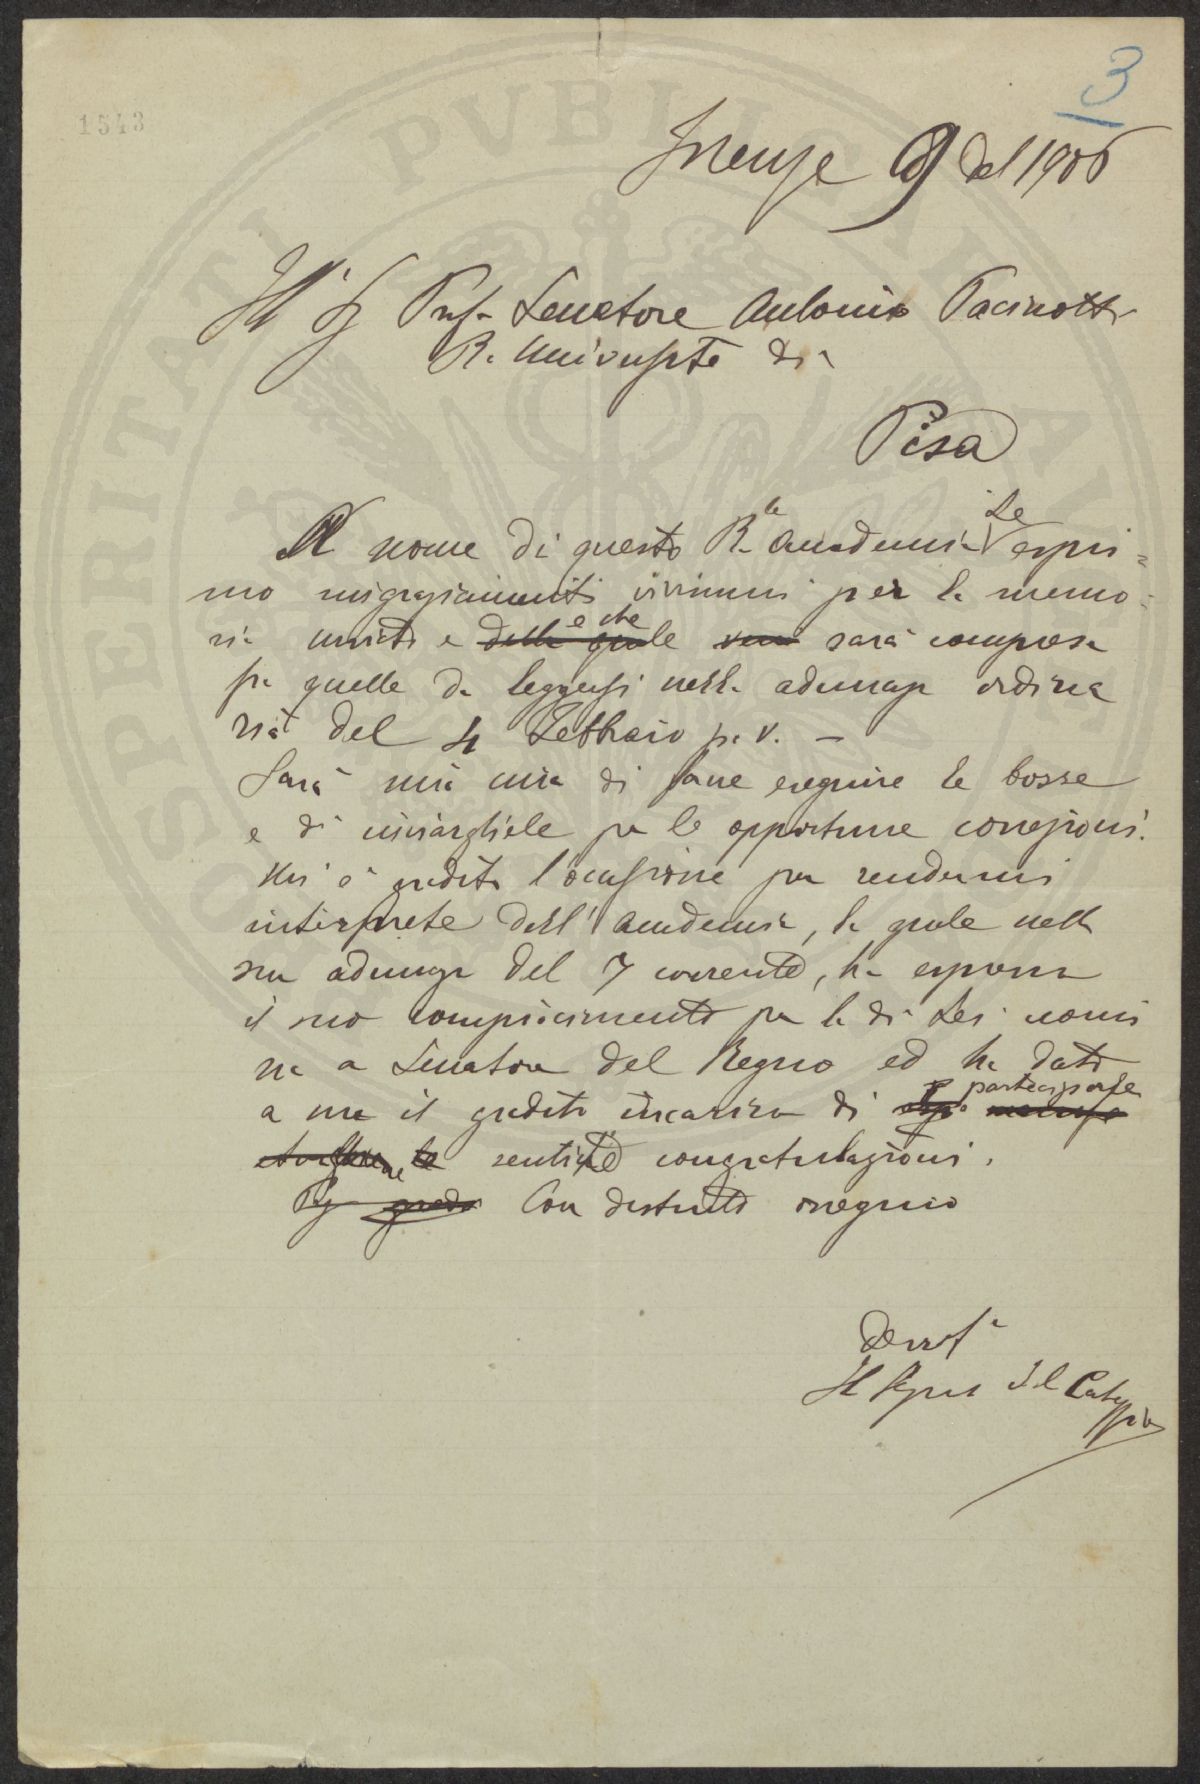 3
1543
Firenze 9 del 1906
Ill. Sg Prof. Senatore Antonio Pacinotti
R. Università di
Pisa
A nome di questa R.le Accademia Le espri=
mo ringraziamenti vivissimi per la memo=
ria inviata e che sarà compresa
fra quelle da leggersi nella adunanza ordina
ria del 4 Febbraio p. v. —
Sarà mia cura di farne eseguire le bozze
e di inviargliele per le opportune correzioni.
Mi è gradita l'occasione per rendermi
interprete dell'Accademia, la quale nella
sua adunanza del 7 corrente, ha espresso
il suo compiacimento per la di Lei nomi
na a Senatore del Regno ed ha dato
a me il gradito incarico di parteciparle
sentite congratulazioni.
Con distinto ossequio
Devot.
Il Segret